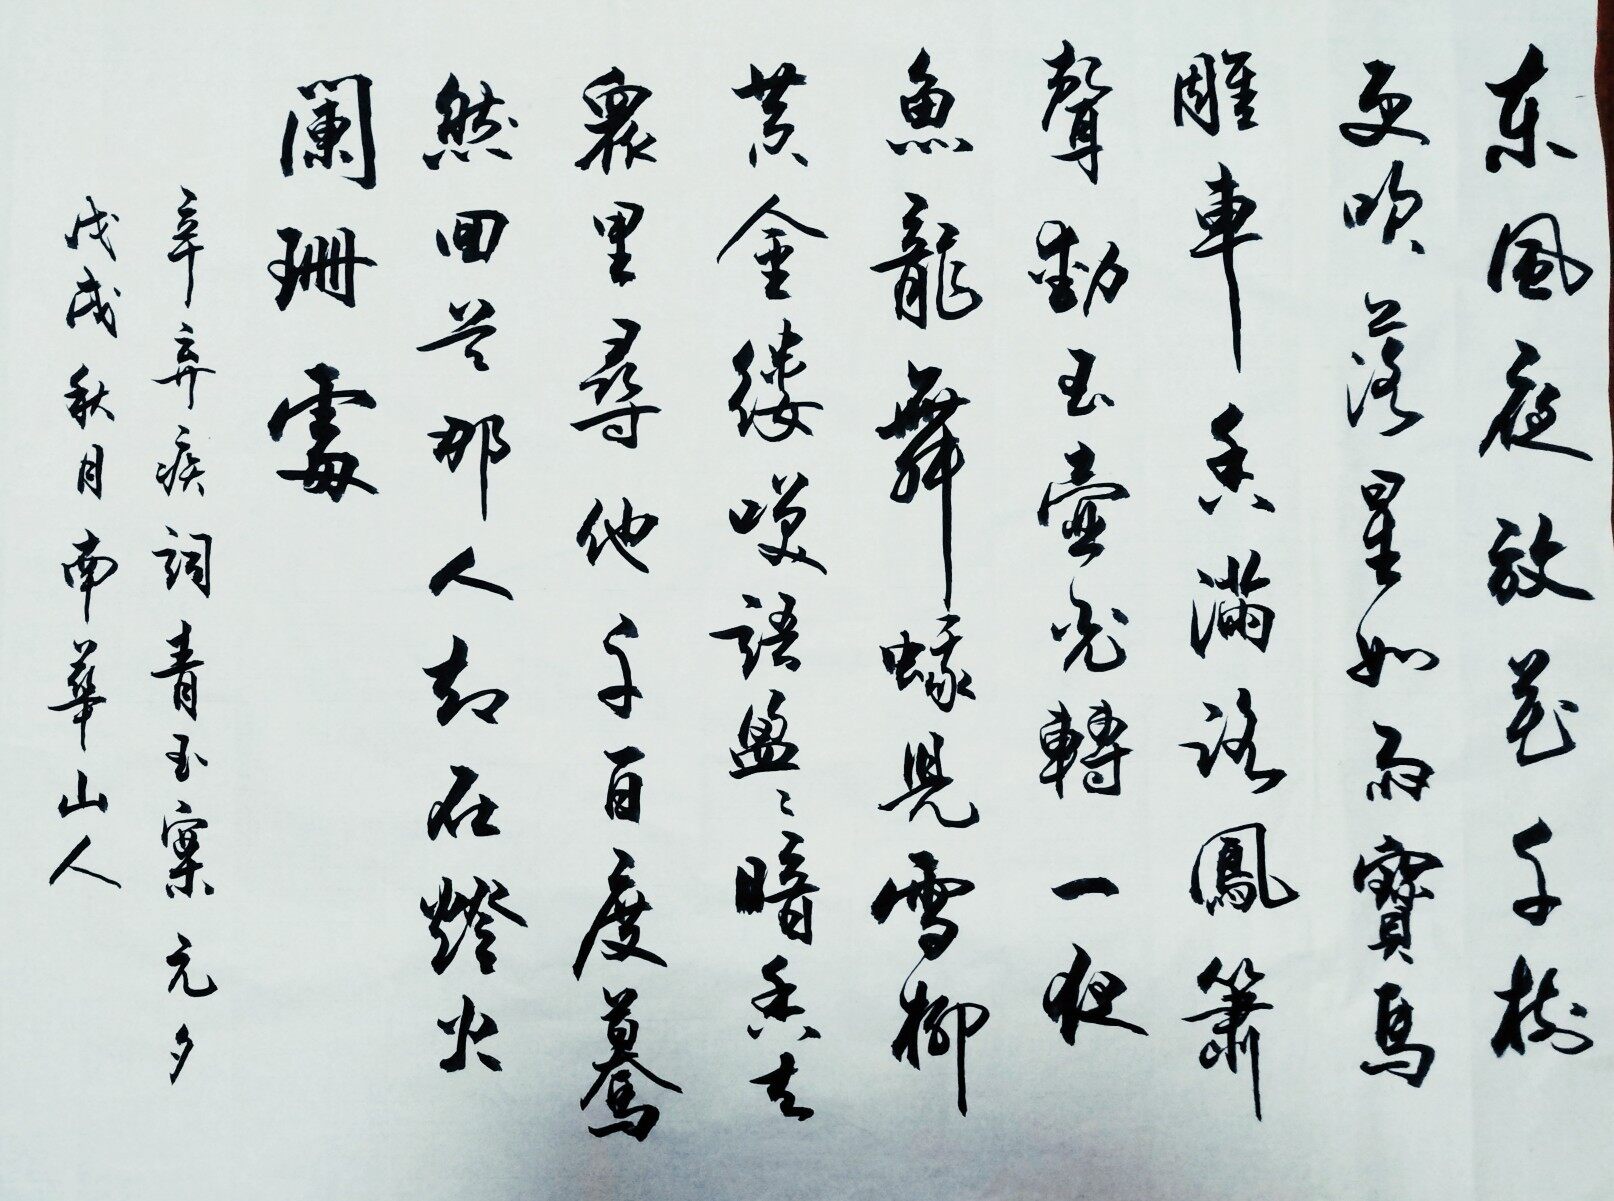 東風夜放花千樹
更吹落星如雨寶馬
雕車香滿路鳳簫
聲動玉壺光轉一夜
魚龍舞蛾兒雪柳
黄金缕笑語盈〻暗香去
衆里尋他千百度驀
然回首那人却在燈火
闌珊處
辛弃疾詞青玉案元夕
戊戌秋月南華山人